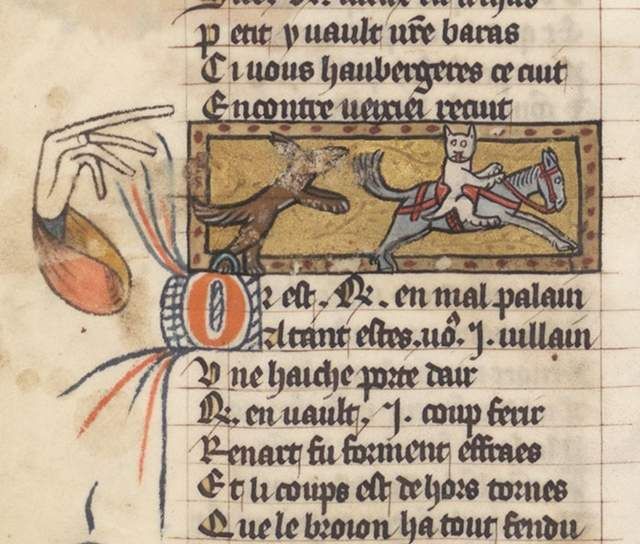 P etit y vault vr̃e baras
C i vous haubergeres ce cuit
E ncontre
O r est . R . en mal palain
A tant estes . vo9 . J . villain
V ne haiche porte dair
R . en vault . J . coup ferir
R enart fu forment effraes
E t li coups est dehors tornes
Q ue le broion ha tout fendu